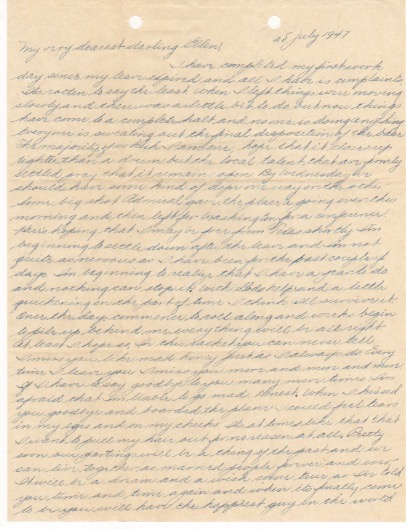 28 July 1947
My very dearest darling Ellen:
I have completed my first work
day since my leave expired and all I have is complaints.
Its rotten to say the least. When I left things were moving
slowly and there was a little bit to do but now things
have come to a complete halt and no one is doing anything.
Everyone is sweating out the final disposition of the base.
The majority, which I am one, hope that it closes up
tighter than a drum but the local talent that are firmly
settled, pray that it remain open. By Wednesday we
should have some kind of dope one way or the other.
Some big shot Admiral gave the place a going over this
morning and then left for Washington for a conference.
Here's hoping that I may be for shortly. I'm
beginning to settle down after the leave and I'm not
quite as nervous as I have been for the past couple of
days. I'm beginning to realize that I have a year to do
and nothing can stop it. With Gods help and a little
quickening in the part of time I think I'll survive it.
Once the days commence to roll along and weeks begin
to pile up behind me everything will be all right
at least I hope so. In this racket you can never tell.
I miss you like mad honey just as I always do. Every
time I leave you I miss you more and more and more.
If I have to say goodbye to you many more times I'm
afraid that I'm liable to go mad. Honest, when I kissed
you goodbye and boarded the plane I could feel tears
in my eyes and on my cheeks. Its at times like that that
I want to pull my hair out for no reason at all. Pretty
soon our parting will be a thing of the past and we
can live together as married people forever and ever.
It will be a dream and a wish come true as I've told
you time and time again and when it finally comes
to be you will have the happiest guy in the world